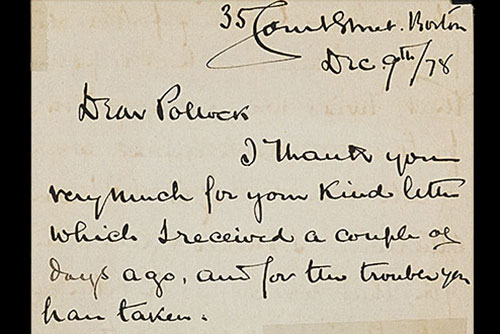 35 Court Street. Boston
Dec 9th/78
Dear Pollock
I thank you
very much for your kind letter
which I received a couple of
days ago, and for the trouble you
have taken.